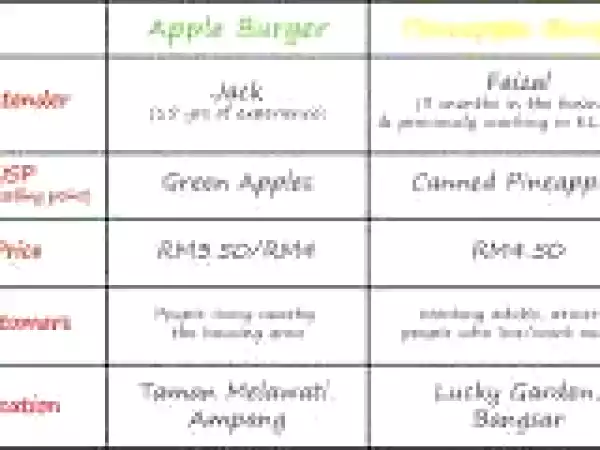 Apple Burger
tender
Jack
Faizal
(? months in the
& previously working in
USP
selling point)
Green Apples
Canned Pineapp
Price
RM3.50/RM4
RM4.50
tomers
People living nearby
the housing area
working adults,
people who live/work
cation
Taman Melawati,
Ampang
Lucky Garden,
Bangsar